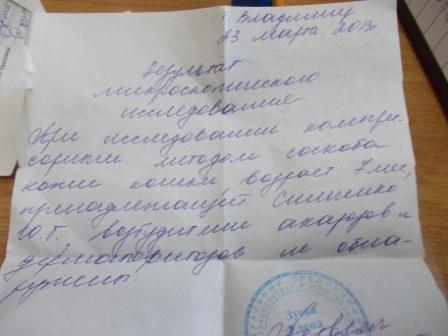 г. Владимир
23 марта 2013г.
Результат
микроскопического
исследования
При исследовании компре-
сорным методом соскоба
кожи кошки, возраст 7 мес,
принадлежащей
Ю.Г. возбудители акарозов и
не обна-
ружены.
Зуева
Елена